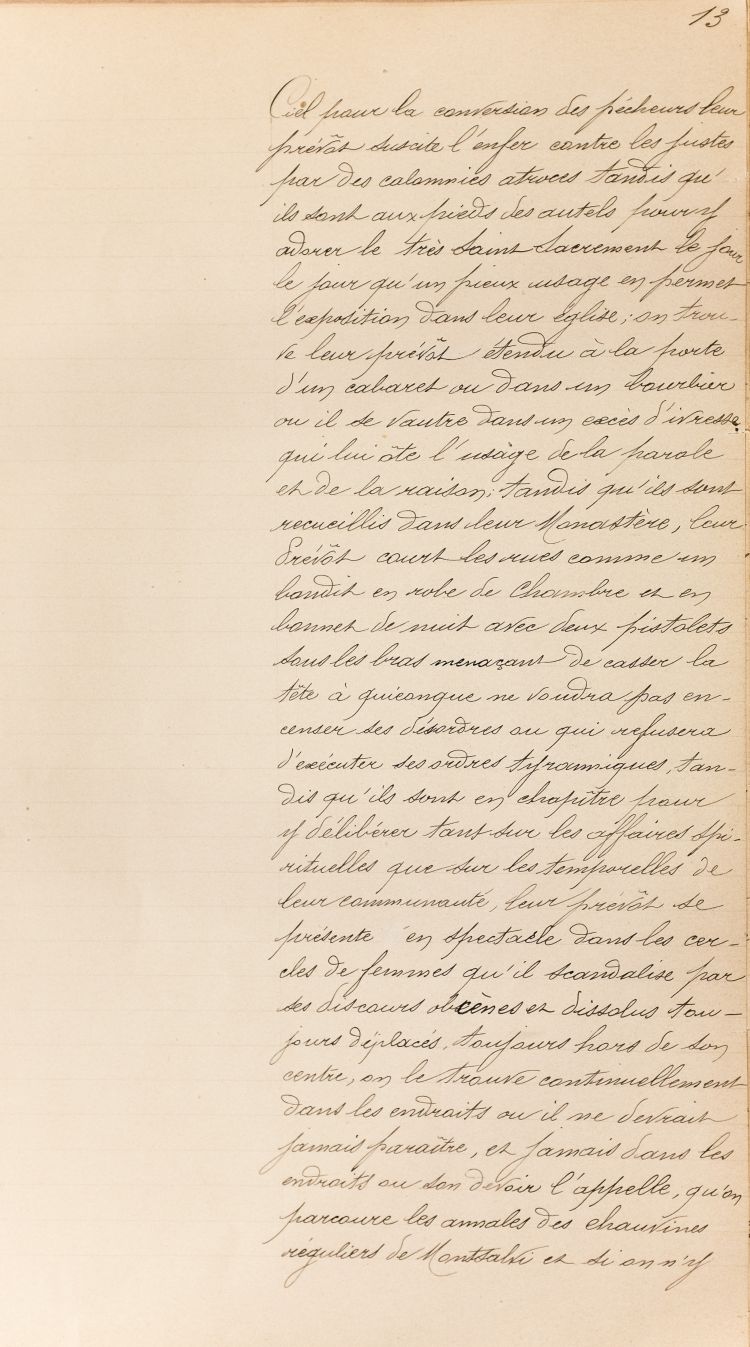 13
Ciel pour la conversion des pécheurs leur
prévôt suscite l'enfer contre les justes
par des calomnies atroces tandis qu'
ils sont aux pieds des autels pour y
adorer le très Saint Sacrement le jour
le jour qu'un pieux usage en permet
l'exposition dans leur église; on trou-
ve leur prévôt étendu à la porte
d'un cabaret ou dans un bourbier
ou il se vautre dans un excès d'ivresse
qui lui ôte l'usage de la parole
et de la raison; tandis qu'ils sont
recueillis dans leur Monastère, leur
Prévôt court les rues comme un
bandit en robe de Chambre et en
bonnet de nuit avec deux pistolets
sous les bras menaçant de casser la
tête à quiconque ne voudra pas en-
censer ses désordres ou qui refusera
d'exécuter ses ordres tyranniques, tan-
dis qu'ils sont en chapître pour
y délibérer tant sur les affaires spi-
rituelles que sur les temporelles de
leur communauté, leur prévôt se
présente en spectacle dans les cer-
cles de femmes qu'il scandalise par
ses discours obscènes et dissolus tou-
jours déplacés, toujours hors de son
centre, on le trouve continuellement
dans les endroits ou il ne devrait
jamais paraître, et jamais dans les
endroits ou son devoir l'appelle, qu'on
parcoure les annales des chauvines
réguliers de Montsalvi et si on n'y